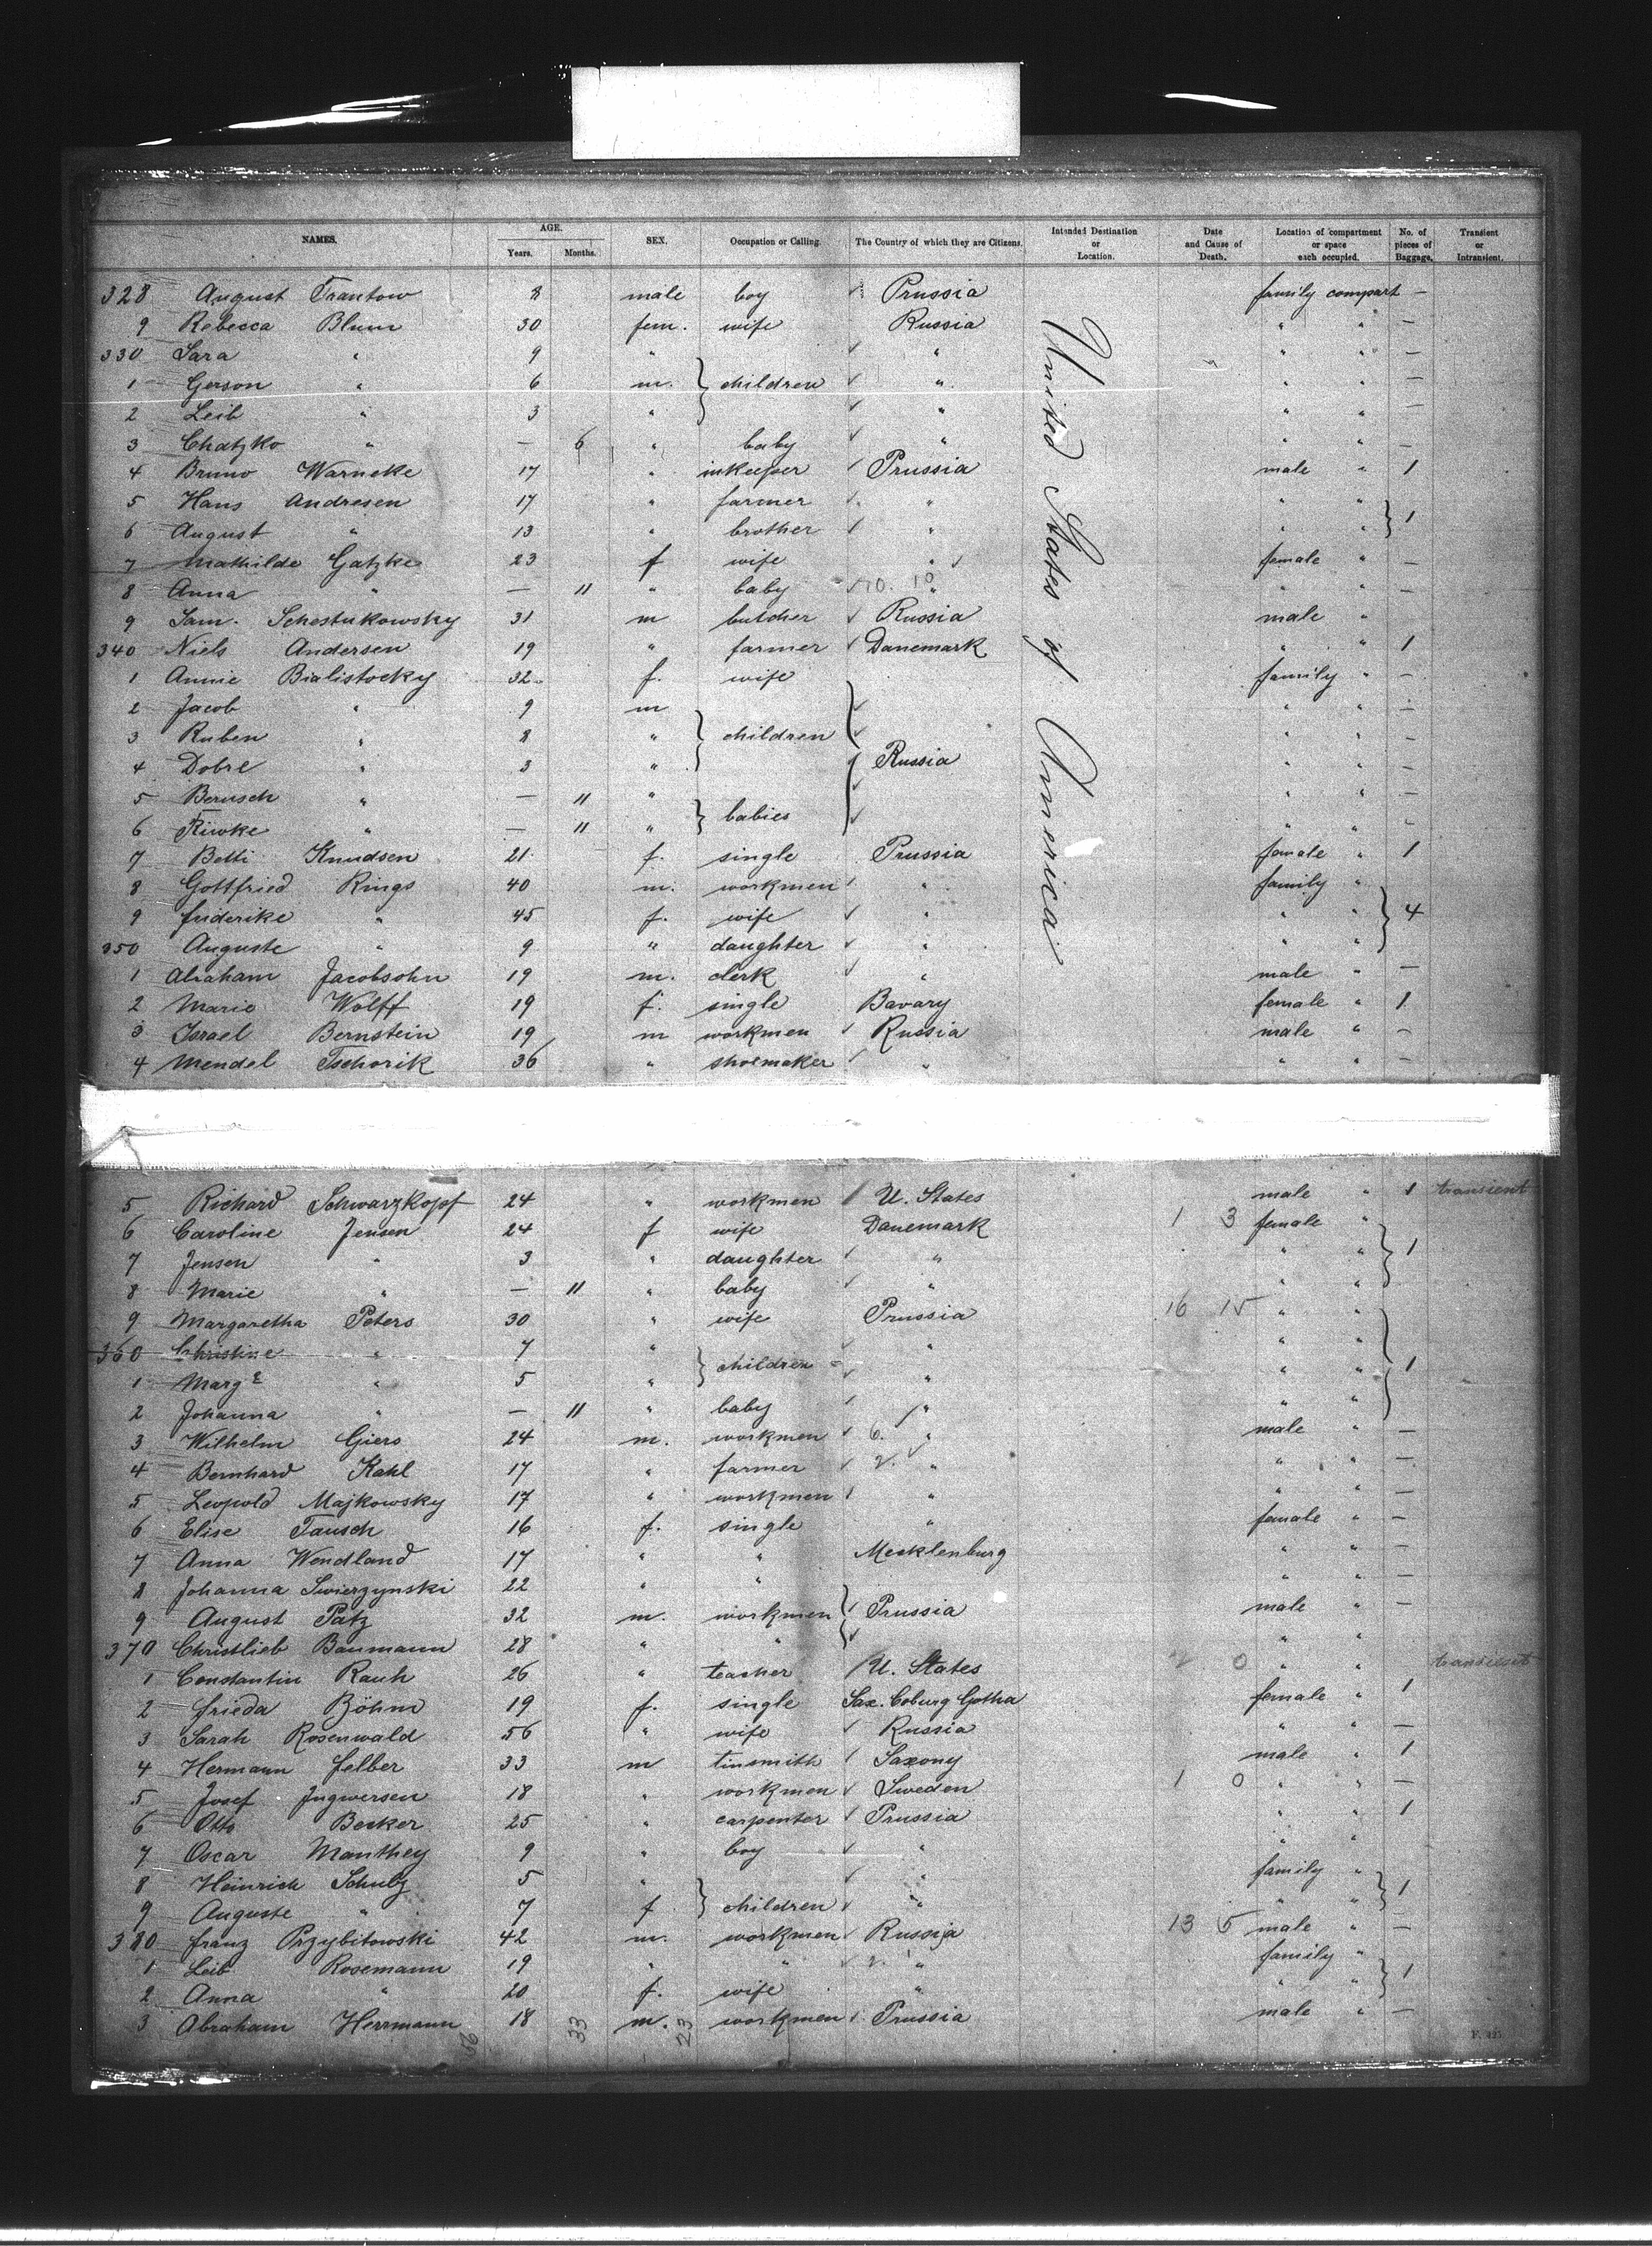 NAMES. AGE. Years. Months. SEX. Occupation or Calling. The Country of which they are Citizens. Intended Destination or Location. Date and Cause of Death. Location of compartment or space each occupied. No. of pieces of Baggage. Transient or Intransient.
328 August Trantow 8 male boy Prussia family compart —
9 Rebecca Blum 30 fem. wife Russia " " —
330 Sara " 9 " " " " —
1 Gerson " 6 m. children " " " —
2 Leib " 3 " " " " —
3 Chatzko " — 6 " baby " " " —
4 Bruno Warneke 17 " inkeeper Prussia male " 1
5 Hans Andresen 17 " farmer " " "
6 August " 13 " brother " " " 1
7 Mathilde Gatzke 23 f wife " female " —
8 Anna " — 11 " baby " " " —
9 Sam. Schestukowsky 31 m butcher Russia male "
340 Niels Andersen 19 " farmer Danemark " " 1
1 Annie Bialistocky 32 f. wife family " —
2 Jacob " 9 m " " —
3 Ruben " 8 " children " " —
4 Dobre " 3 " Russia " " —
5 Berusch " — 11 " " " —
6 Riwke " — 11 " babies " " —
7 Betti Knudsen 21 f. single Prussia female " 1
8 Gottfried Rings 40 m. workmen " family "
9 friderike " 45 f. wife " " " 4
350 Auguste " 9 " daughter " " "
1 Abraham Jacobsohn 19 m. clerk " male " —
2 Marie Wolff 19 f. single Bavary female " 1
3 Israel Bernstein 19 m workmen Russia male " —
4 Mendel Tschorik 36 " shoemaker " " " —
United States of America
5 Richard Schwarzkopf 24 " workmen U. States male " 1 transient
6 Caroline Jensen 24 f wife Danemark 1 3 female "
7 Jensen " 3 " daughter " " " 1
8 Marie " — 11 " baby " " "
9 Margaretha Peters 30 " wife Prussia 16 15 " "
360 Christine " 7 " " " "
1 Marg " 5 " children " " " 1
2 Johanna " — 11 " baby " " "
3 Wilhelm Giers 24 m. workmen 6. " male " —
4 Bernhard Kahl 17 " farmer 2. " " " —
5 Leopold Majkowsky 17 " workmen " " " —
6 Elise Tausch 16 f. single " female " —
7 Anna Wendland 17 " " Mecklenburg " " —
8 Johanna Swierzynski 22 " " " " —
9 August Patz 32 m. workmen Prussia male " —
370 Christlieb Baumann 28 " " " "
1 Constantin Rauh 26 " teacher U. States 0 " " transient
2 frieda Böhm 19 f. single Sax. Coburg Gotha female " 1
3 Sarah Rosenwald 56 " wife Russia " " —
4 Hermann felber 33 m tinsmith Saxony male " 1
5 Josef Ingwersen 18 " workmen Sweden 1 0 " " —
6 Otto Becker 25 " carpenter Prussia " " 1
7 Oscar Manthey 9 " boy " " "
8 Heinrich Schulz 5 " " family "
9 Auguste " 7 f children " " " 1
380 franz Przybitowski 42 m. workmen Russia 13 5 male " —
1 Leib Rosemann 19 " " 2. " family "
2 Anna " 20 f. wife " " " 1
3 Abraham Herrmann 18 m. workmen Prussia male " —
33 23